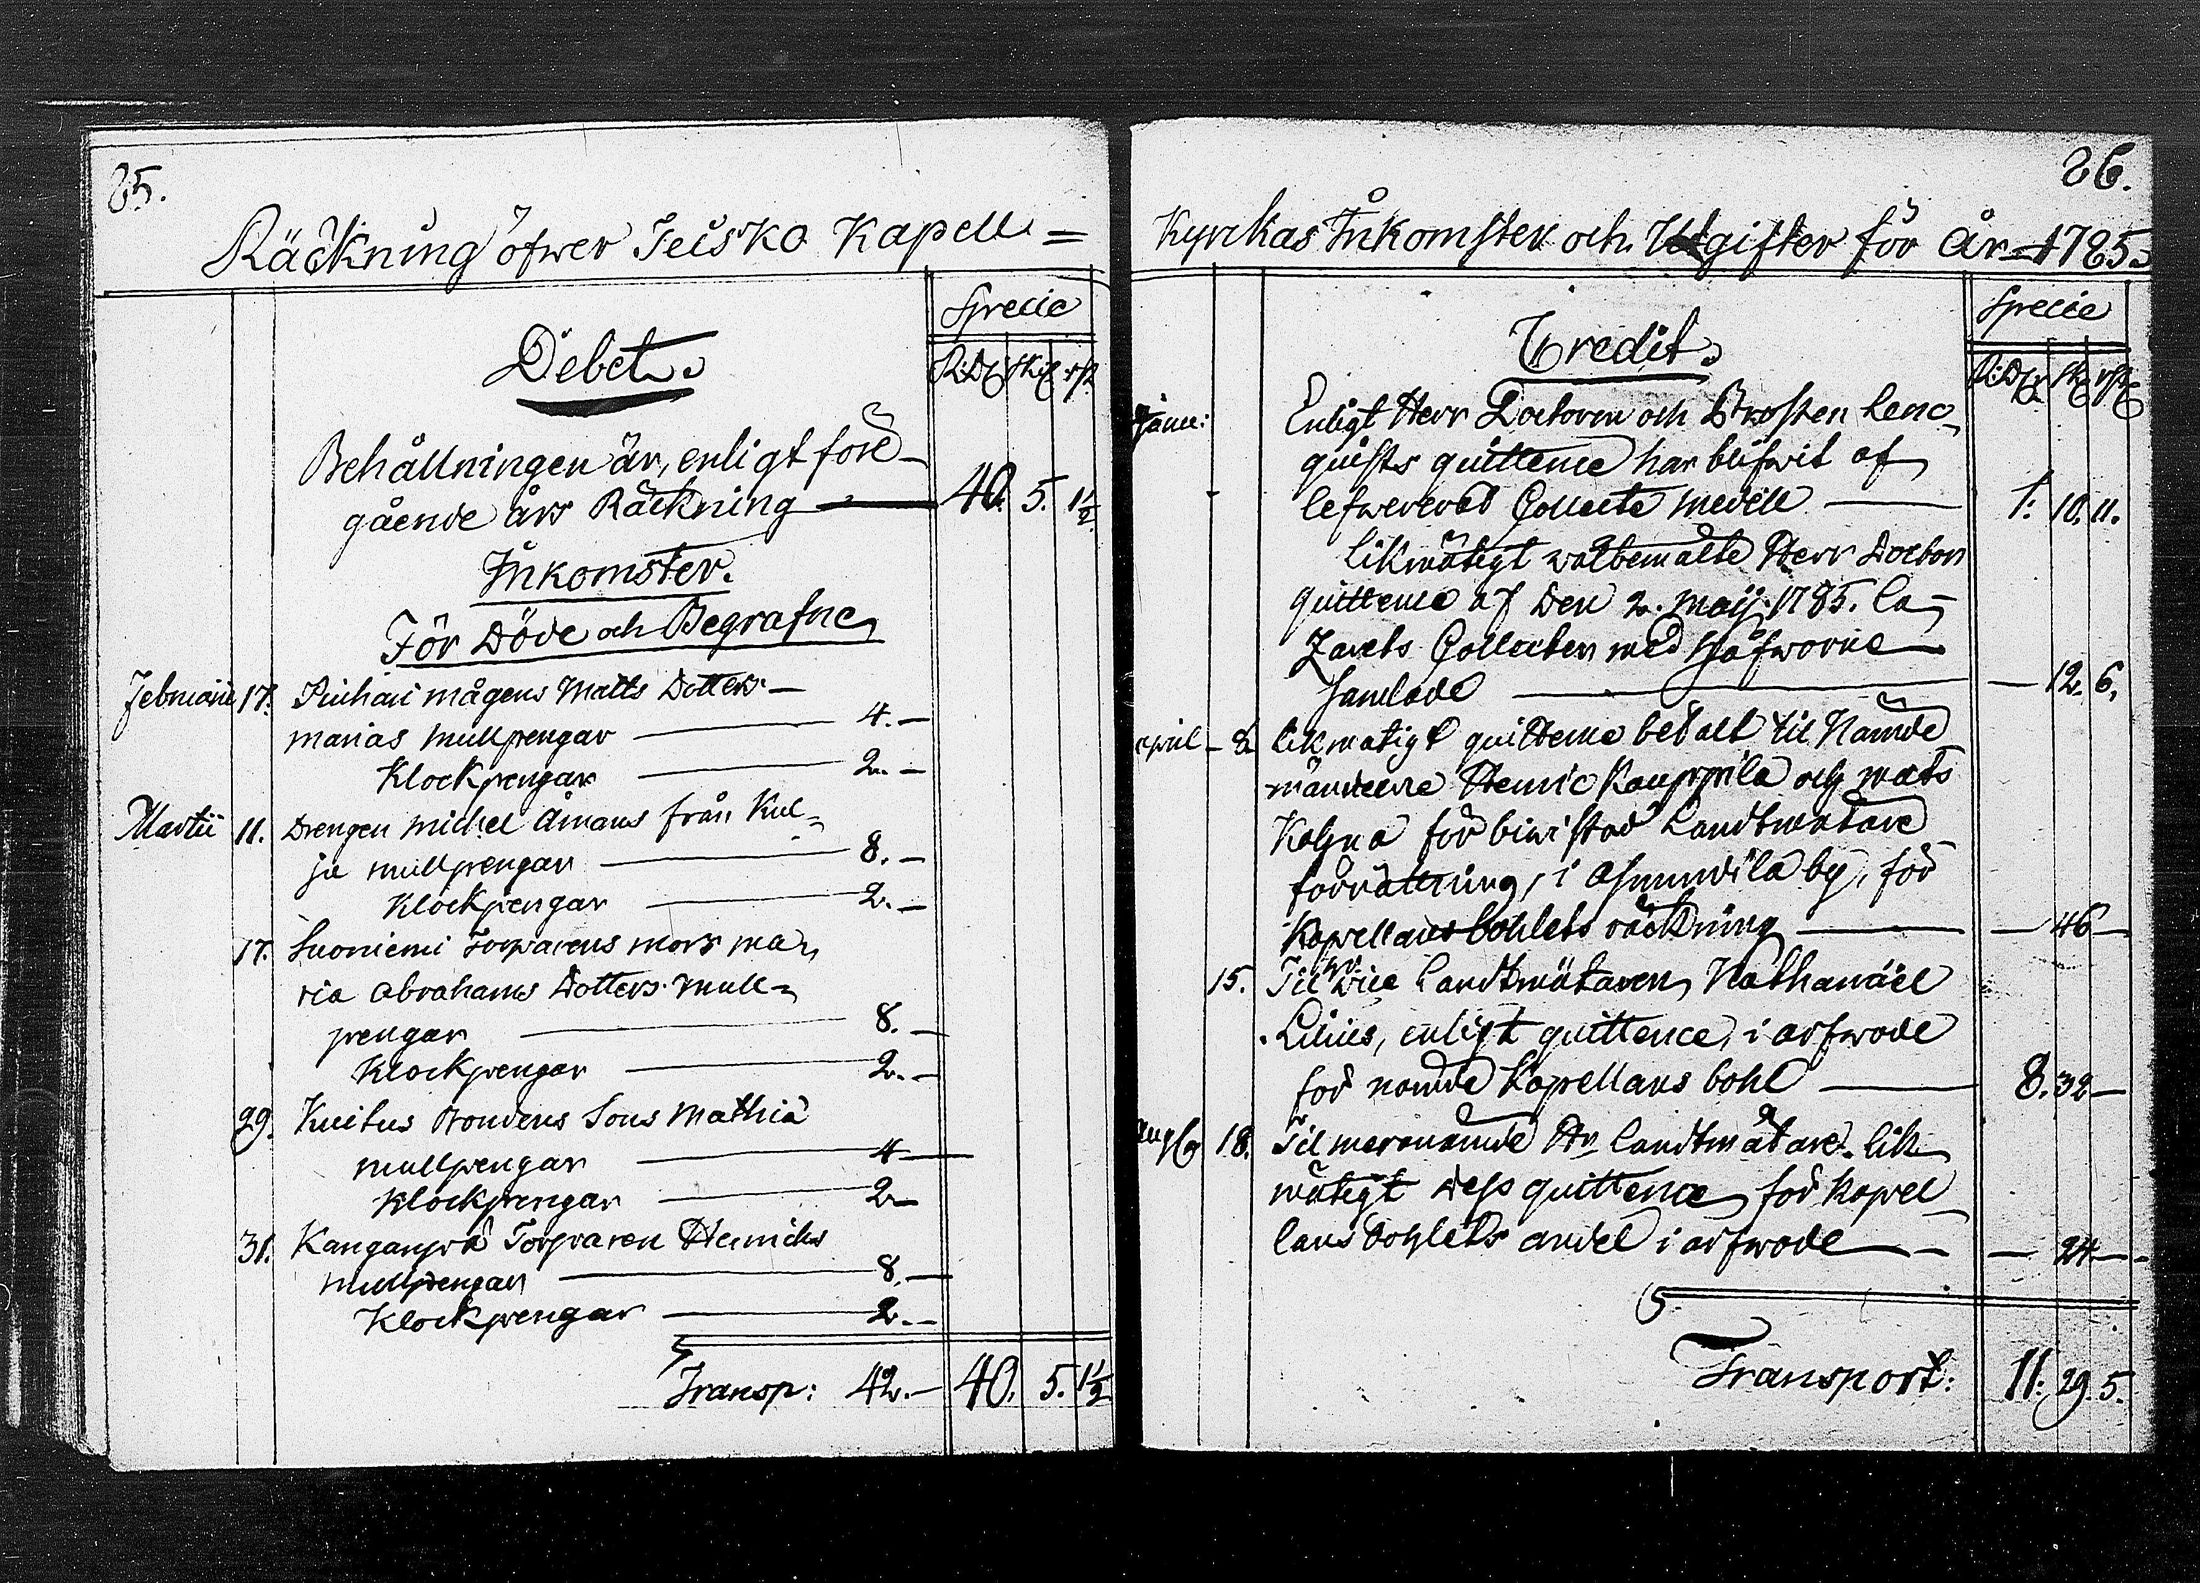 85.
Räckning öfwer Teisko Kapell =
Specie
Debet.
R:D sk: rst
Behållningen är, enligt före-
gående års Räckning — 40. 5. 1½
Inkomster.
För Döde och Begrafne
Februarii 17. mågens Matts Dotters
Marias mullpengar — 4. —
Klockpengar — 2. —
Martii 11. Drengen Michel Åmans från Kul-
ju mullpengar — 8. —
Klockpengar — 2. —
17. Suoniemi Torparens mors Ma-
ria Abrahams Dotters mull-
pengar — 8. —
Klockpengar — 2. —
29. Kuitus Bondens Sons Mathiæ
mullpengar — 4 —
Klockpengar — 2 —
31. Torparen Henrichs
mullpengar — 8. —
Klockpengar — 2. —
Transp: 42. — 40. 5. 1½
86.
Kyrckas Inkomster och Utgifter för År 1785.
Specie
Credit.
R:D sk rst
Janu: Enligt Herr Doctoren och Prosten Lenc-
quists quittence har blifwit af
lefwererad Collecte medell — 1. 10. 11.
Likmätigt wälbemälte Herr Doctors
quittence af den 2. Maij 1785. La-
zarets Collecten med Håfworne
samlade — 12. 6.
April 2 Likmätigt quittence betalt til Nämde
männerne Henric Kauppila och Mats
för biwistad Landtmätare
förrättning, i Asunndila by, för
Kapellans bohlets räckning — 46 —
15. Til Hr Vice Landtmätaren Nathanaël
Lilius, enligt quittence, i arfwode
för nämde Kapellans bohl — 8. 32 —
Aug 18. Til meranämde Hr Landtmätare lik-
mätigt dess quittence för Kapel-
lans bohlets andel i arfwode — 24 —
Transport: 11. 29. 5.